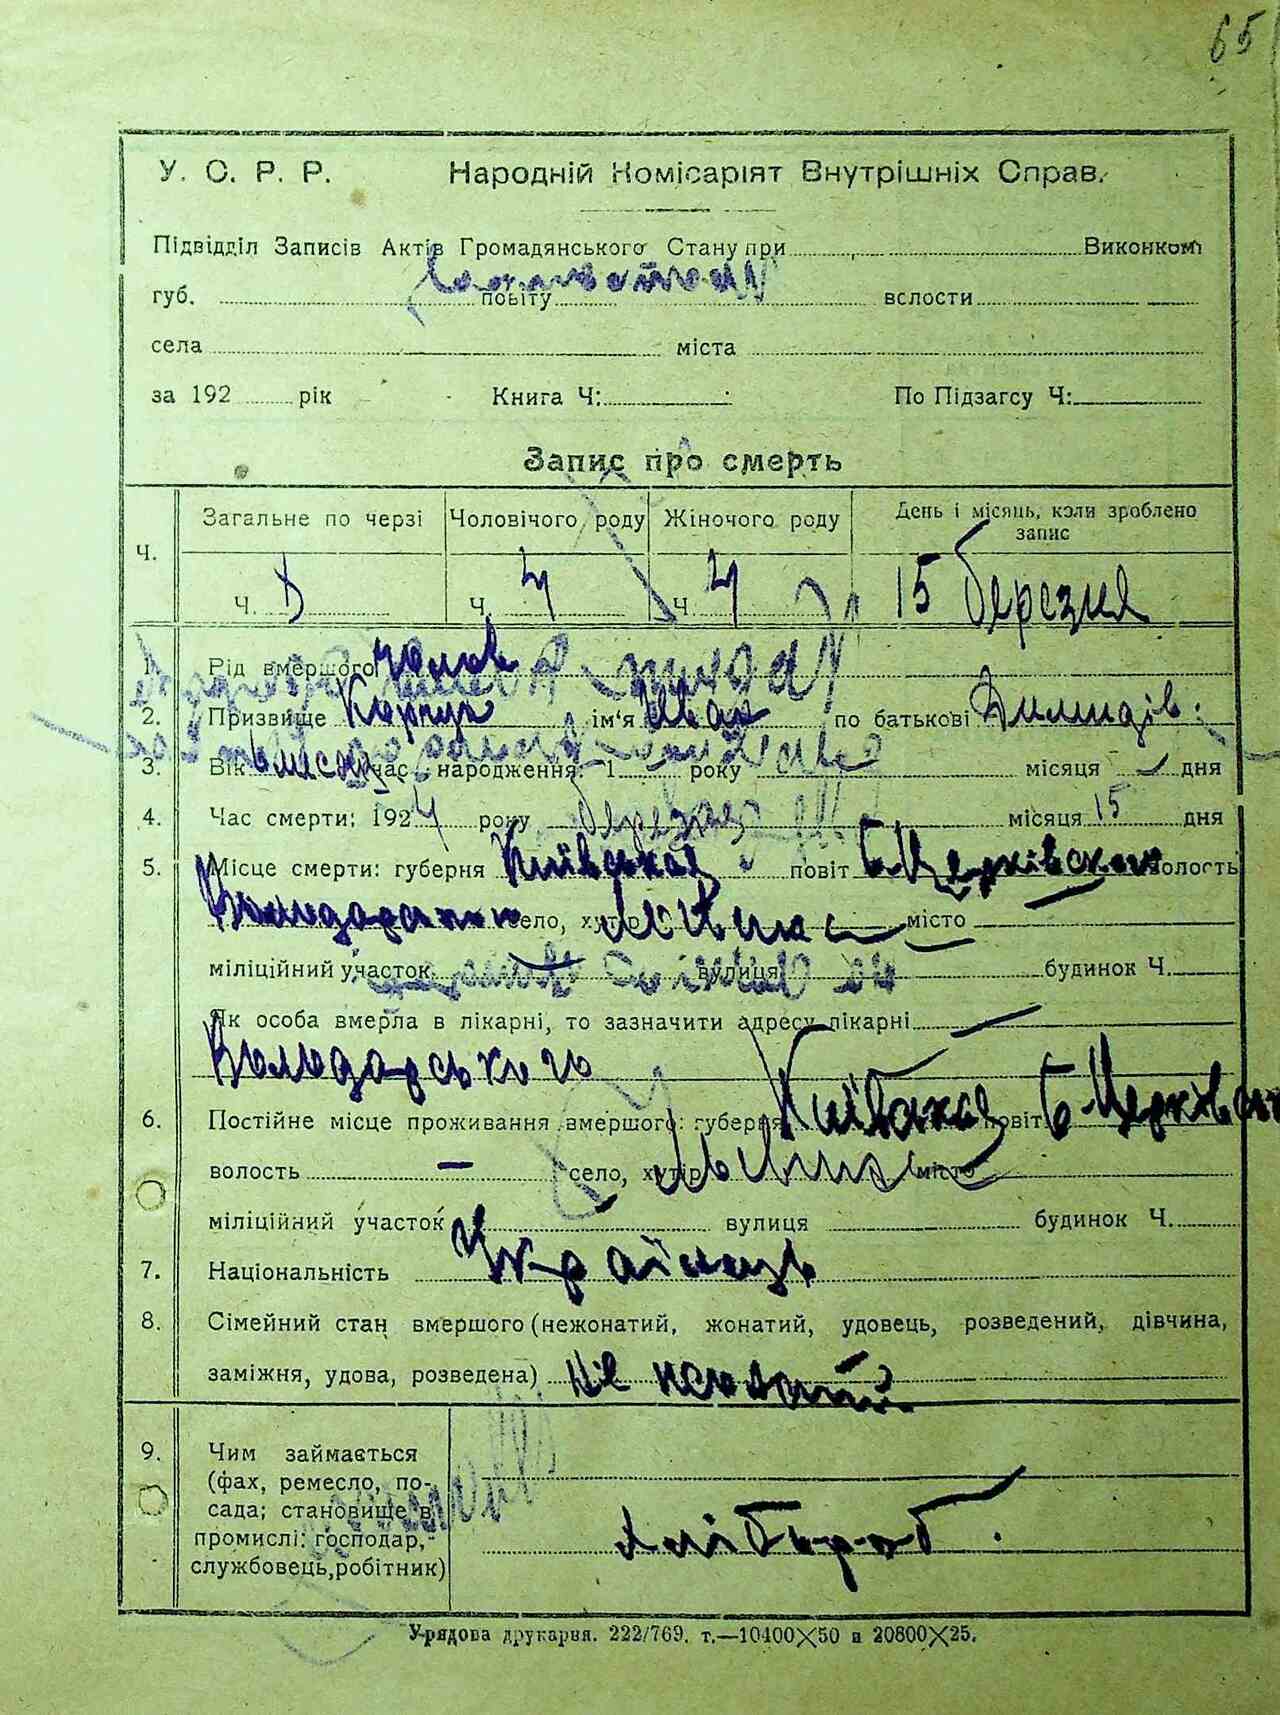 65
У. С. Р. Р. Народній Комісаріят Внутрішніх Справ.
Підвідділ Записів Актів Громадянського Стану при Виконком
губ. повіту волости
села міста
за 192 рік Книга Ч: По Підзагсу Ч:
Запис про смерть
Загальне по черзі Чоловічого роду Жіночого роду День і місяць, коли зроблено запис
Ч. Ч. Ч. 4 Ч. 4 15 березня
1. Рід вмершого чолов
2. Призвище ім'я Иван по батькові
3. Вік час народження: 1 року місяця дня
4. Час смерти: 1924 року березня місяця 15 дня
5. Місце смерти: губерня Київська повіт Б-Церківського волость
Володарської село, хутір місто
міліційний участок вулиця будинок Ч.
Як особа вмерла в лікарні, то зазначити адресу лікарні
Володарського
6. Постійне місце проживання вмершого: губерня Київська повіт Б-Церківськ
волость — село, хутір місто
міліційний участок вулиця будинок Ч.
7. Національність Українець
8. Сімейний стан вмершого (нежонатий, жонатий, удовець, розведений, дівчина,
заміжня, удова, розведена) не жонатий
9. Чим займається
(фах, ремесло, по-
сада; становище в
промислі: господар,
службовець, робітник)
хлібороб.
Урядова друкарня. 222/769. т.—10400×50 и 20800×25.